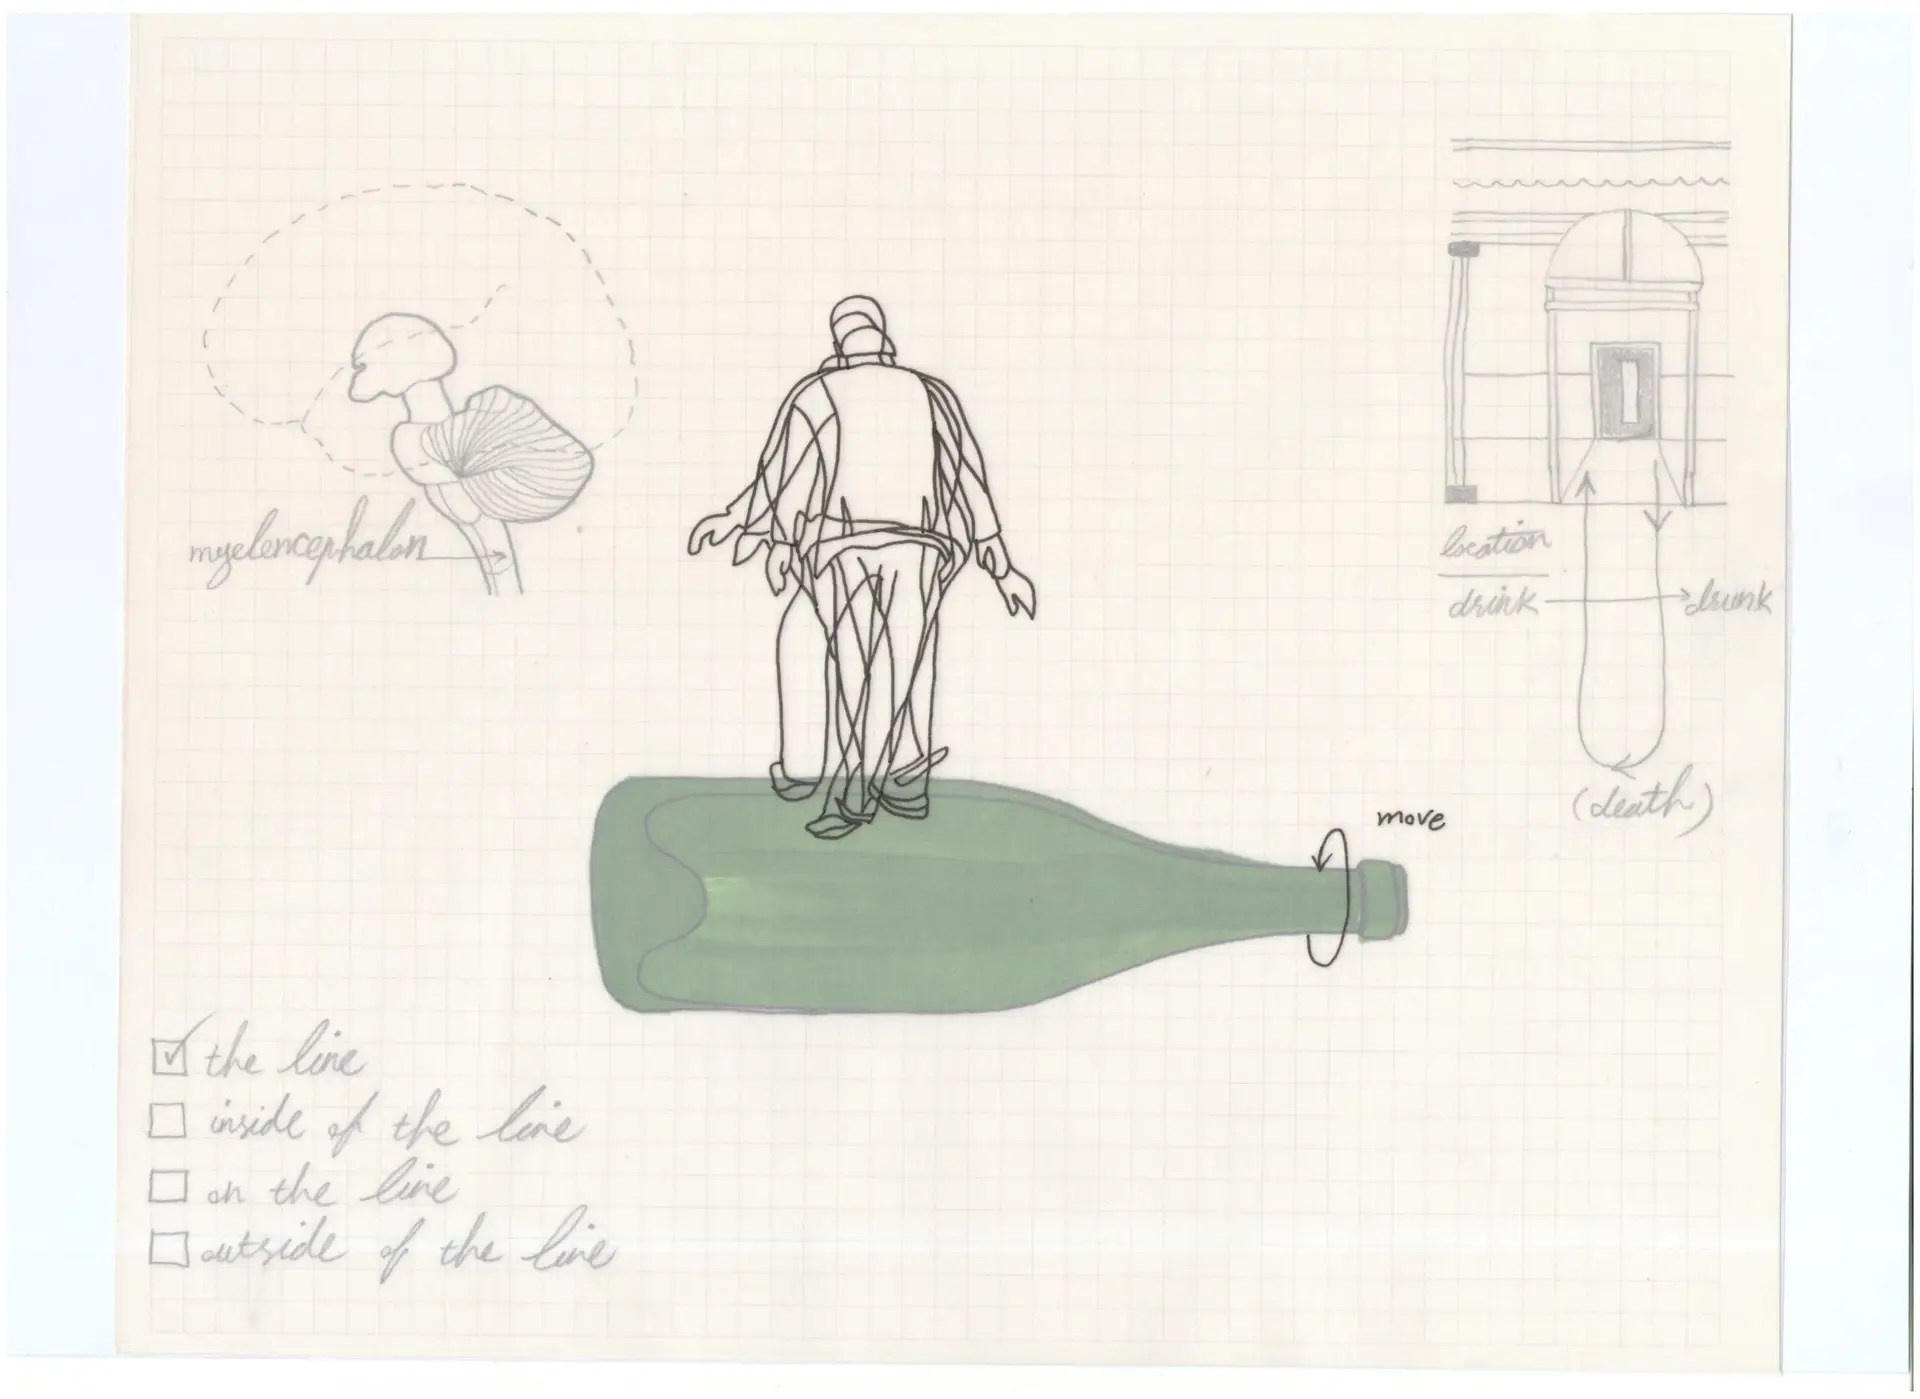 myelencephalon
location
drink
drunk
(death)
move
the line
inside of the line
on the line
outside of the line